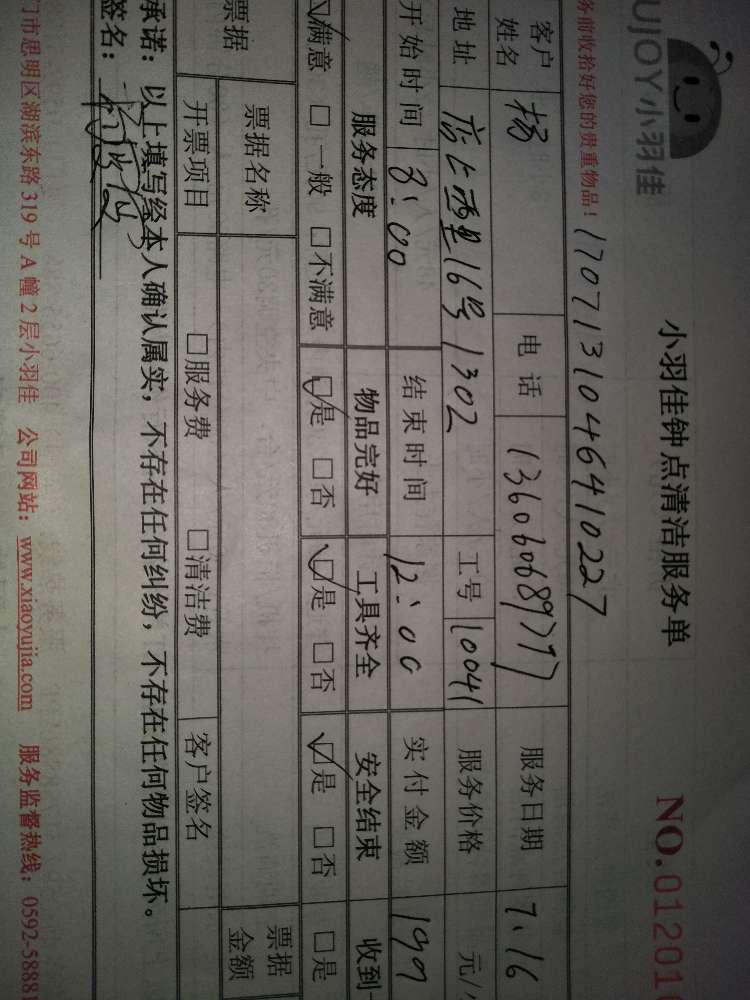 UJOY小羽佳
小羽佳钟点清洁服务单
NO.01201
务前收拾好您的贵重物品！ 1707131046410227
客户姓名 杨 电话 13606068977 服务日期 7.16
地址 16号1302 工号 10041 服务价格 元/
开始时间 8:00 结束时间 12:00 实付金额 199
服务态度 物品完好 工具齐全 安全结束 收到
满意 □一般 □不满意 □是 □否 □是 □否 □是 □否 □是
票据 票据名称 票据金额
开票项目 □服务费 □清洁费 客户签名
承诺：以上填写经本人确认属实，不存在任何纠纷，不存在任何物品损坏。
签名：
门市思明区湖滨东路319号A幢2层小羽佳 公司网站：www.xiaoyujia.com 服务监督热线：0592-5888